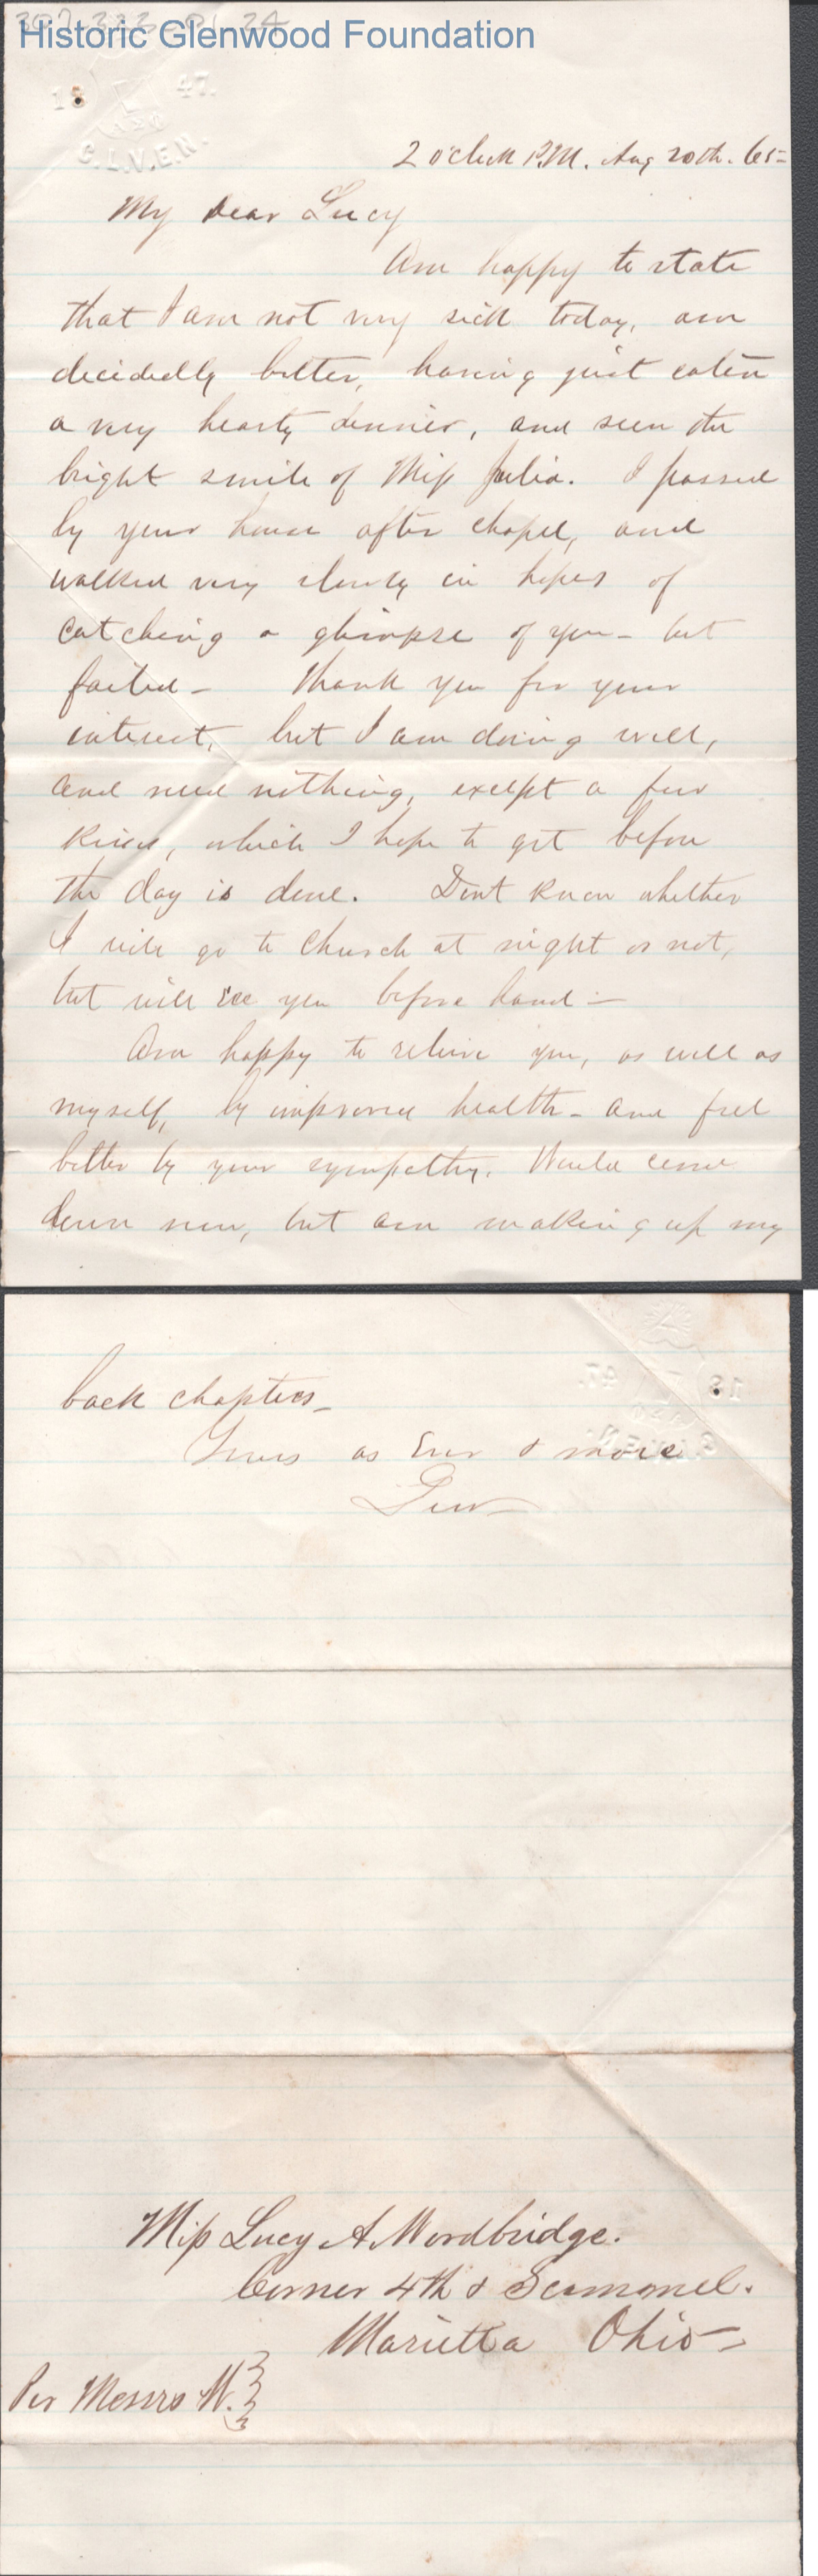 307.323.01.2A
Historic Glenwood Foundation
18 47.
C.L.V.E.N.
2 o'clock P.M. Aug 20th. 65-
My dear Lucy
Am happy to state
that I am not very sick today, am
decidedly better, having just eaten
a very hearty dinner, and seen the
bright smile of Miss Julia. I passed
by your house after chapel, and
walked very slowly in hopes of
catching a glimpse of you - but
failed - Thank you for your
interest, but I am doing well,
and need nothing, except a few
kisses, which I hope to get before
the day is done. Dont know whether
I will go to church at night or not,
but will see you before hand -
Am happy to relieve you, as well as
myself, by improved health - and feel
better by your sympathy. Would come
down now, but am making up my
back chapters -
Yours as Ever & more
Miss Lucy A. Woodbridge.
Corner 4th & Scammel.
Marietta Ohio -
Per Messrs W.